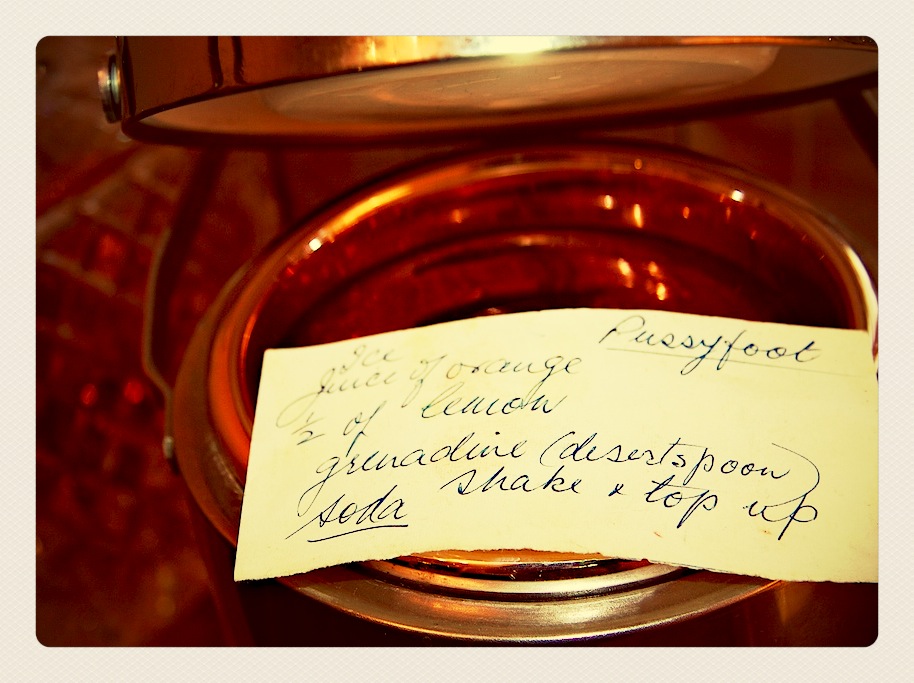 Pussyfoot
Ice
Juice of orange
½ of lemon
grenadine (desertspoon)
shake & top up
soda